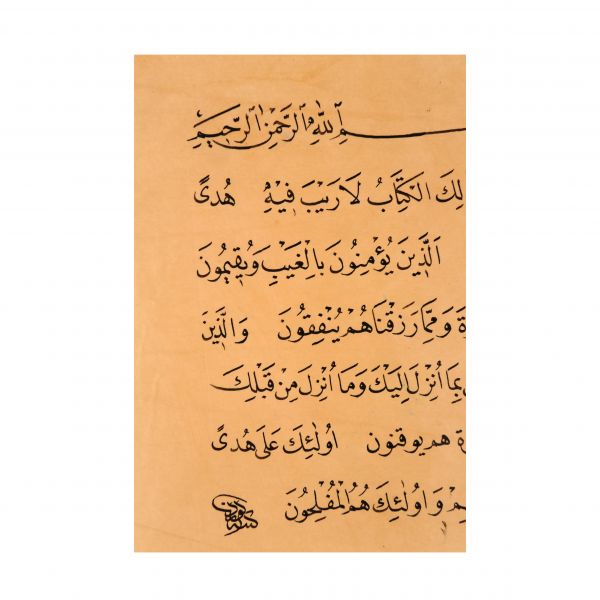 ـم ٱللّٰهِ ٱلرَّحْمٰنِ ٱلرَّحِيمِ
لِكَ الْكِتَابُ لَا رَيْبَ فِيهِ هُدىً
اَلَّذِينَ يُؤْمِنُونَ بِالْغَيْبِ وَيُقِيمُونَ
ةَ وَمِمَّا رَزَقْنَاهُمْ يُنْفِقُونَ وَالَّذِينَ
بِمَا اُنْزِلَ اِلَيْكَ وَمَا اُنْزِلَ مِنْ قَبْلِكَ
ةِ هم يوقنون اُولٰئِكَ عَلَى هُدىً
ـهِمْ وَاُولٰئِكَ هُمُ الْمُفْلِحُونَ